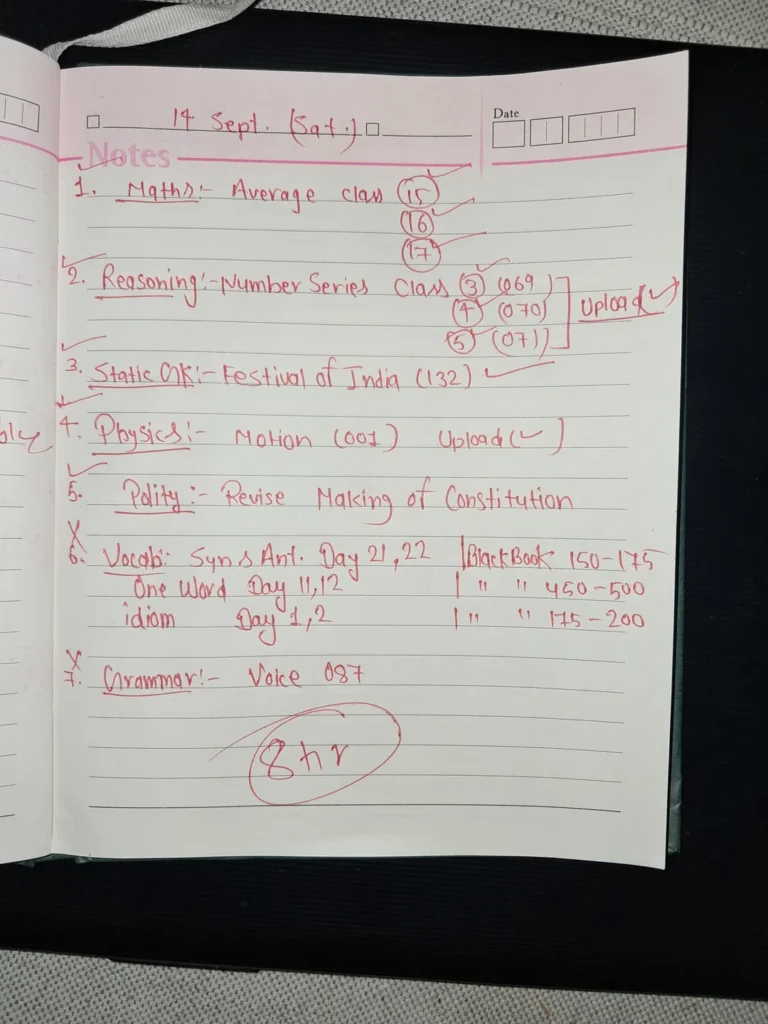 14 Sept. (Sat.)
Date
Notes
1. Maths:- Average class 15
16
17
2. Reasoning:- Number Series Class 3 (069)
4 (070) Upload(✓)
5 (071)
3. Static GK:- Festival of India (132) ✓
4. Physics:- Motion (001) Upload(✓)
5. Polity:- Revise Making of Constitution
X
6. Vocab: Syn & Ant. Day 21,22 | BlackBook 150-175
One Word Day 11,12 | " " 450-500
idiom Day 1,2 | " " 175-200
X
7. Grammar:- Voice 087
8hr